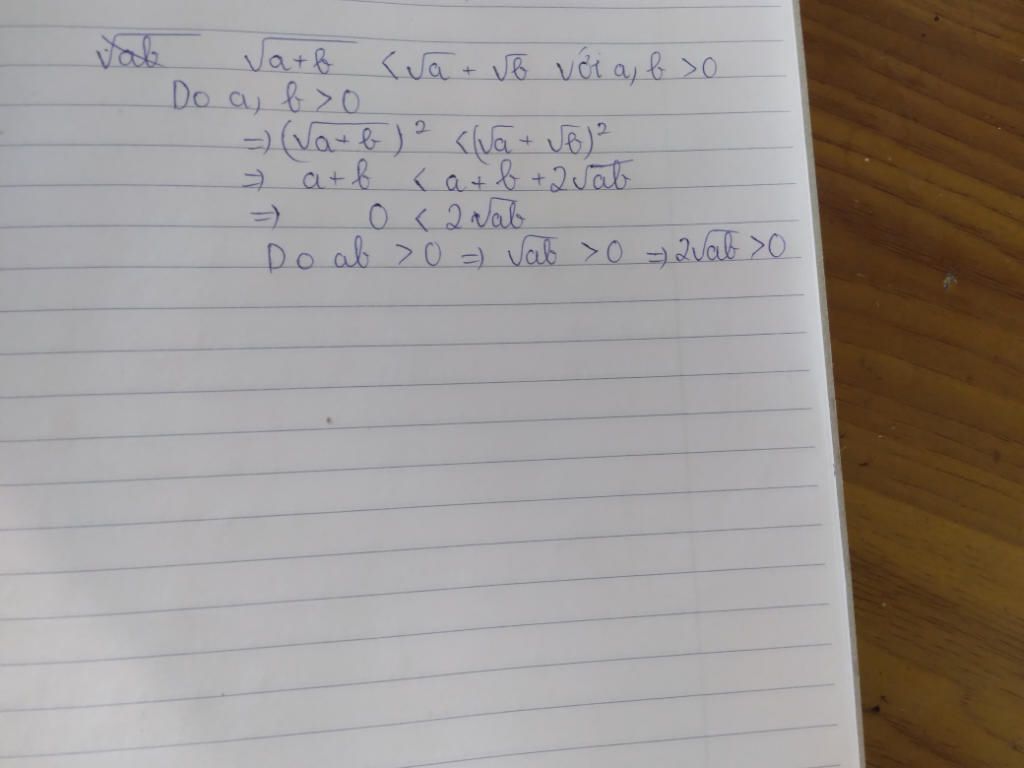 √ab √a+b < √a + √b Với a, b > 0
Do a, b > 0
=> (√a+b)² < (√a + √b)²
=> a+b < a + b + 2√ab
=> 0 < 2√ab
Do ab > 0 => √ab > 0 => 2√ab > 0